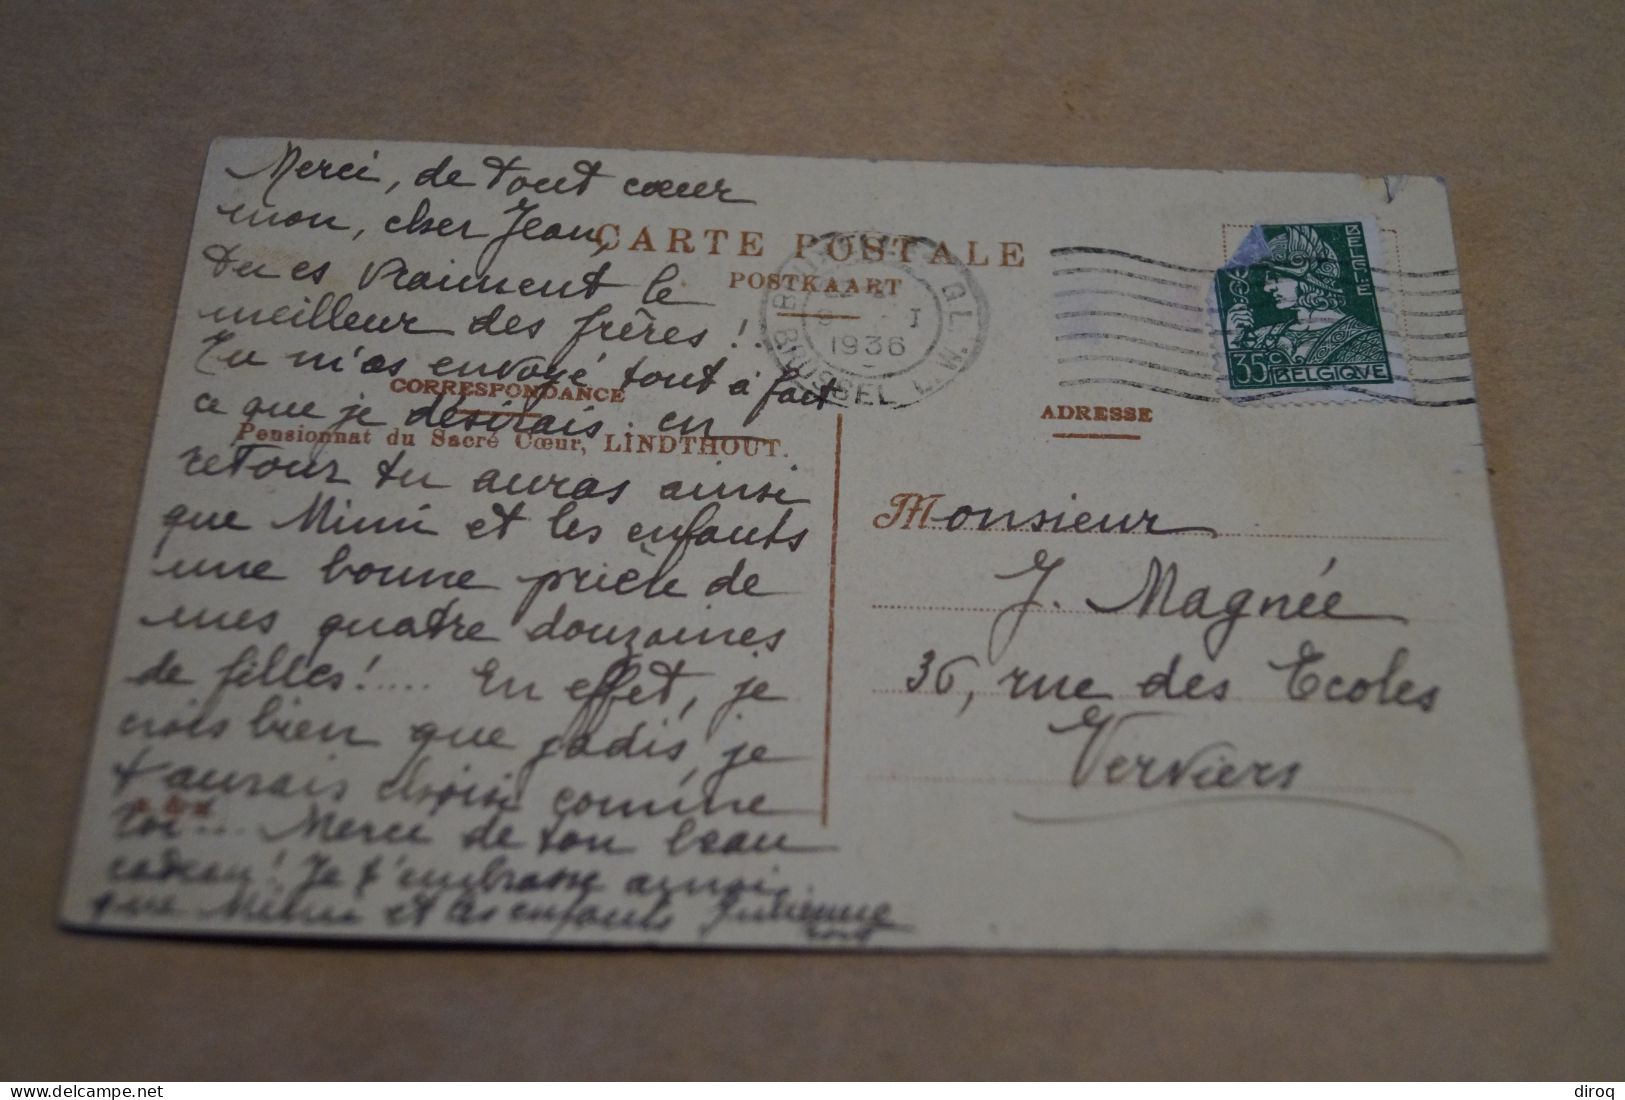 Merci, de tout cœur
mon, cher Jean,
CARTE POSTALE
tu es vraiment le
POSTKAART
meilleur des frères !.
Tu m'as envoyé tout à fait
CORRESPONDANCE
ce que je désirais. en
Pensionnat du Sacré Cœur, LINDTHOUT.
retour tu auras ainsi
que Mimi et les enfants
une bonne prière de
mes quatre douzaines
de filles!.... En effet, je
crois bien que jadis, je
t'aurais choisi comme
toi... Merci de ton beau
cadeau! Je t'embrasse ainsi
que Mimi et les enfants Julienne
1936
BRUSSEL
35c
BELGIQUE
BELGIE
ADRESSE
Monsieur
J. Magnée
36, rue des Ecoles
Verviers
diroq